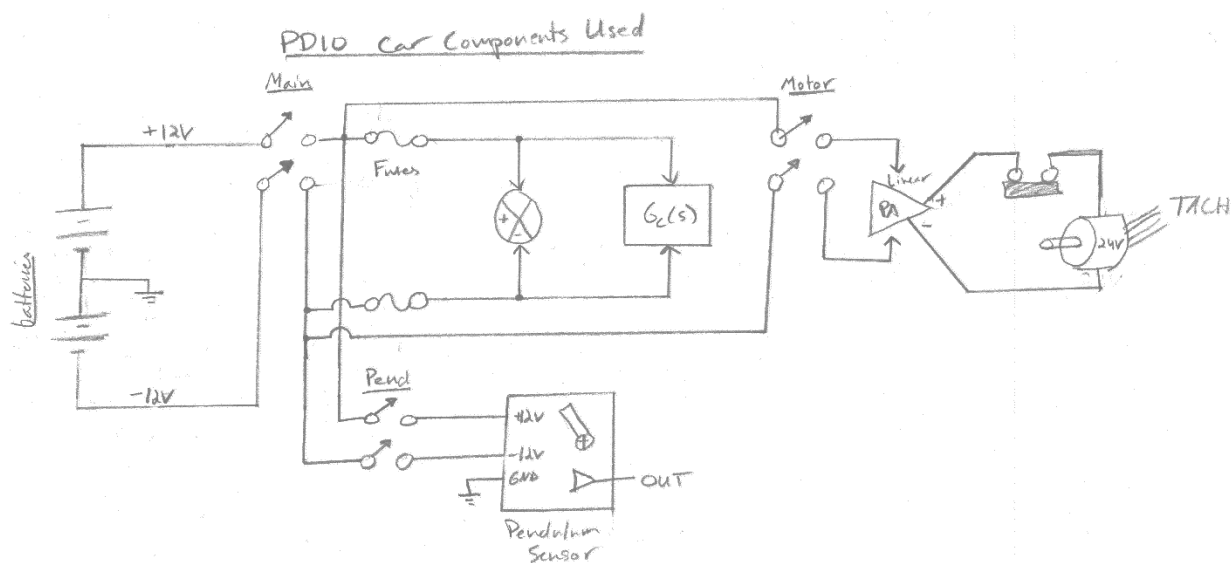 PD10 Car Components Used
Main
Motor
+12V
Fuses
Linear
PA
+
-
+
-
Gc(s)
24V
TACH
batteries
-12V
Pend
+12V
-12V
GND
OUT
Pendulum
Sensor